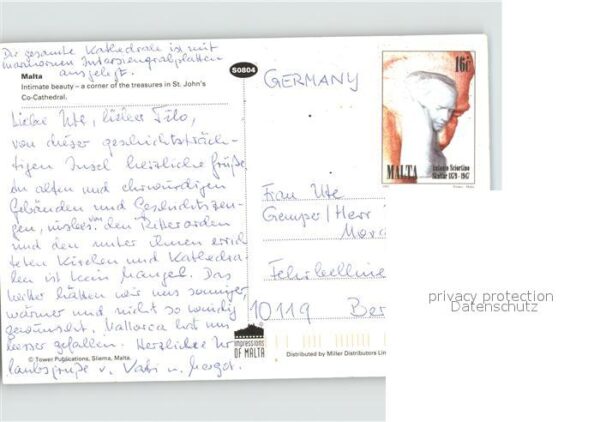 Die gesamte Kathedrale ist mit
marmornen Intarsiengrabplatten
ausgelegt.
Malta
Intimate beauty – a corner of the treasures in St. John's
Co-Cathedral.
S0804
Liebe Ute, lieber Tilo,
von dieser geschichtsträch-
tigen Insel herzliche Grüße.
An alten und ehrwürdigen
Gebäuden und Geschichtszeu-
gen, insbes. von den Ritterorden
und den unter ihnen errich
teten Kirchen und Kathedra-
len ist kein Mangel. Das
Wetter hätten wir uns sonniger,
wärmer und nicht so windig
gewünscht. Mallorca hat uns
besser gefallen. Herzliche Ur
laubsgrüße v. Vati u. Margot.
© Tower Publications, Sliema, Malta.
GERMANY
16c
MALTA
Antonio Sciortino
Skultur 1879 - 1947
Frau Ute
Gemper/Herr
Fehrbelline
10119 Ber
impressions
OF MALTA
Distributed by Miller Distributors Lim
privacy protection
Datenschutz